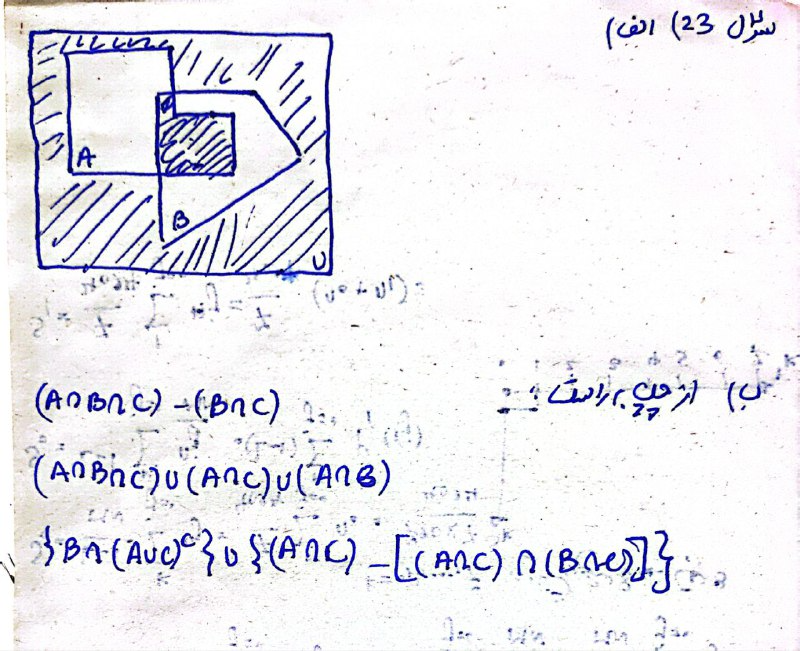 سوال 23) الف)
A
B
U
ب) از چپ به راست :
(A∩B∩C) - (B∩C)
(A∩B∩C)∪(A∩C)∪(A∩B)
}B∩(A∪C)ᶜ}∪}(A∩C) - [(A∩C)∩(B∩C)]}